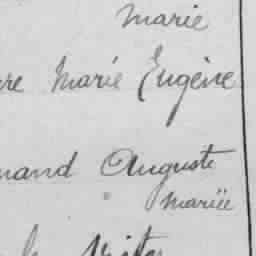 Marie
re Marie Eugène
mand Auguste
Mariée